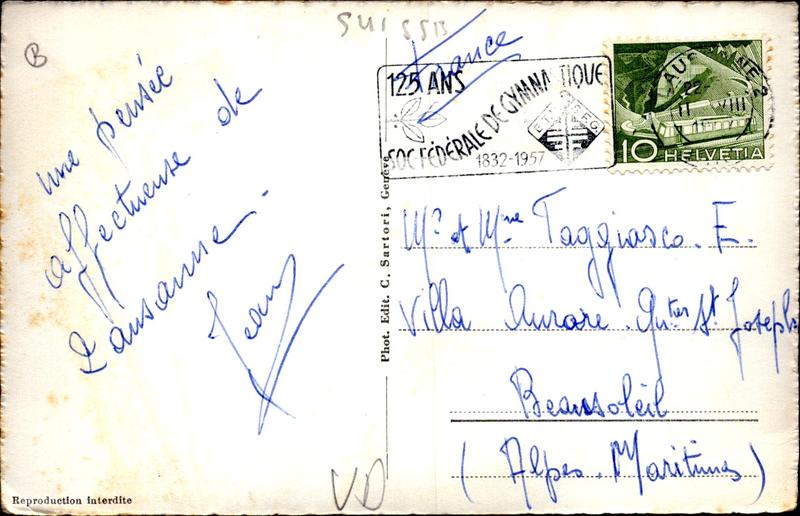 SUISSE
B
une pensée
affectueuse de
Lausanne.
Jean
Reproduction interdite
VD
Phot. Edit. C. Sartori, Genève
France
125 ANS
SOC. FÉDÉRALE DE GYMNASTIQUE
1832-1957
LAUSANNE
VIII
10 HELVETIA
Mr et Mme Taggiasco. E.
Villa Aurore. Qrtier St Joseph
Beausoleil
(Alpes. Maritimes)